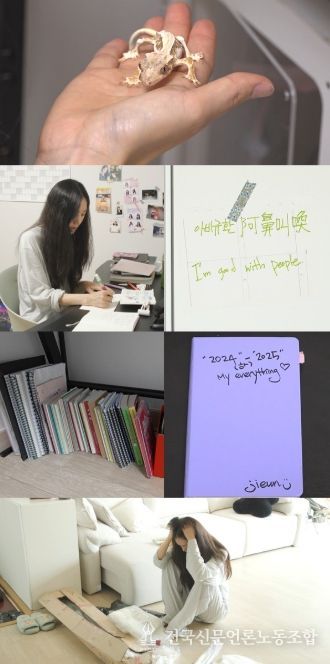 아비규환 阿鼻叫喚
I'm good with people
"2024" ~ "2025"
My everything♡
jieun
전국신문언론노동조합